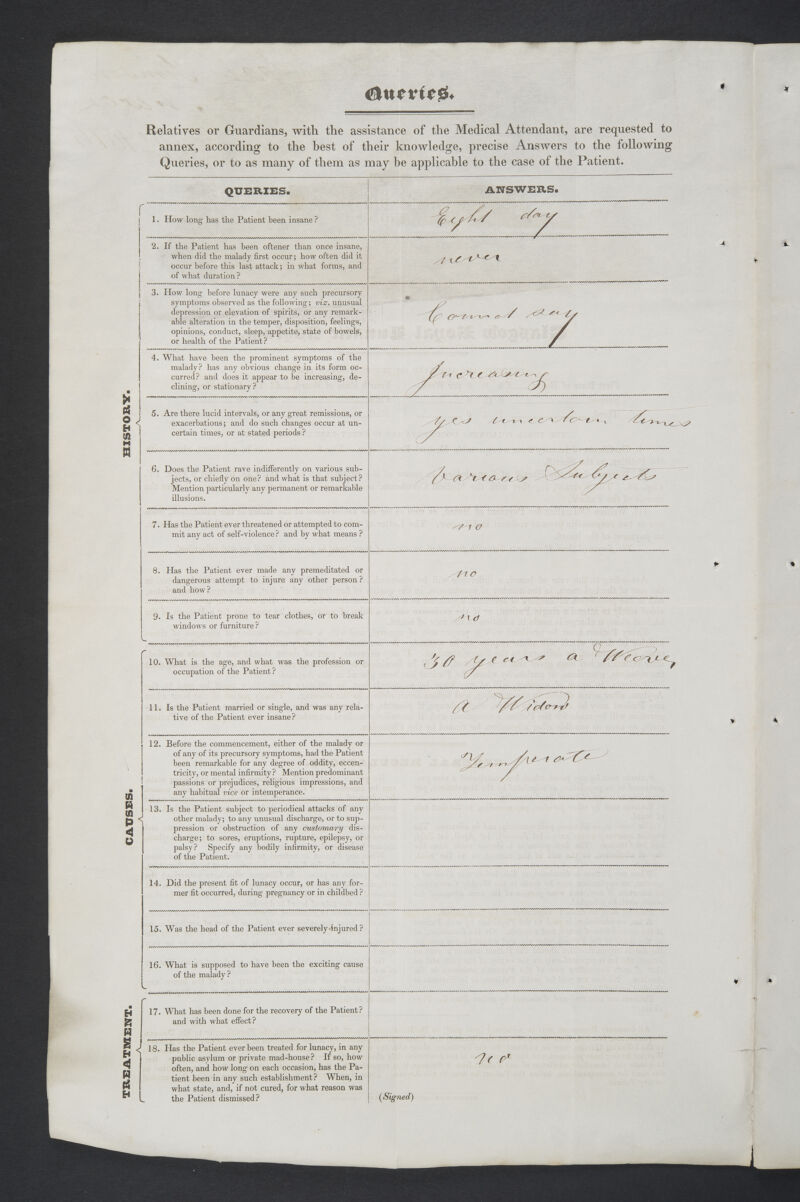 Queries.
Relatives or Guardians, with the assistance of the Medical Attendant, are requested to
annex, according to the best of their knowledge, precise Answers to the following
Queries, or to as many of them as may be applicable to the case of the Patient.
QUERIES.
ANSWERS.
HISTORY.
1. How long has the Patient been insane?
Eight day
2. If the Patient has been oftener than once insane,
when did the malady first occur; how often did it
occur before this last attack; in what forms, and
of what duration?
never
3. How long before lunacy were any such precursory
symptoms observed as the following; viz. unusual
depression or elevation of spirits, or any remark-
able alteration in the temper, disposition, feelings,
opinions, conduct, sleep, appetite, state of bowels,
or health of the Patient?
Connot say
4. What have been the prominent symptoms of the
malady? has any obvious change in its form oc-
curred? and does it appear to be increasing, de-
clining, or stationary?
Increasing
5. Are there lucid intervals, or any great remissions, or
exacerbations; and do such changes occur at un-
certain times, or at stated periods?
yes uncertain times
6. Does the Patient rave indifferently on various sub-
jects, or chiefly on one? and what is that subject?
Mention particularly any permanent or remarkable
illusions.
Various Subjects
7. Has the Patient ever threatened or attempted to com-
mit any act of self-violence? and by what means?
no
8. Has the Patient ever made any premeditated or
dangerous attempt to injure any other person?
and how?
no
9. Is the Patient prone to tear clothes, or to break
windows or furniture?
no
CAUSES.
10. What is the age, and what was the profession or
occupation of the Patient?
30 years a Weaver
11. Is the Patient married or single, and was any rela-
tive of the Patient ever insane?
a Widow
12. Before the commencement, either of the malady or
of any of its precursory symptoms, had the Patient
been remarkable for any degree of oddity, eccen-
tricity, or mental infirmity? Mention predominant
passions or prejudices, religious impressions, and
any habitual vice or intemperance.
Temperate
13. Is the Patient subject to periodical attacks of any
other malady; to any unusual discharge, or to sup-
pression or obstruction of any customary dis-
charge; to sores, eruptions, rupture, epilepsy, or
palsy? Specify any bodily infirmity, or disease
of the Patient.
14. Did the present fit of lunacy occur, or has any for-
mer fit occurred, during pregnancy or in childbed?
15. Was the head of the Patient ever severely injured?
16. What is supposed to have been the exciting cause
of the malady?
TREATMENT.
17. What has been done for the recovery of the Patient?
and with what effect?
18. Has the Patient ever been treated for lunacy, in any
public asylum or private mad-house? If so, how
often, and how long on each occasion, has the Pa-
tient been in any such establishment? When, in
what state, and, if not cured, for what reason was
the Patient dismissed?
no
(Signed)